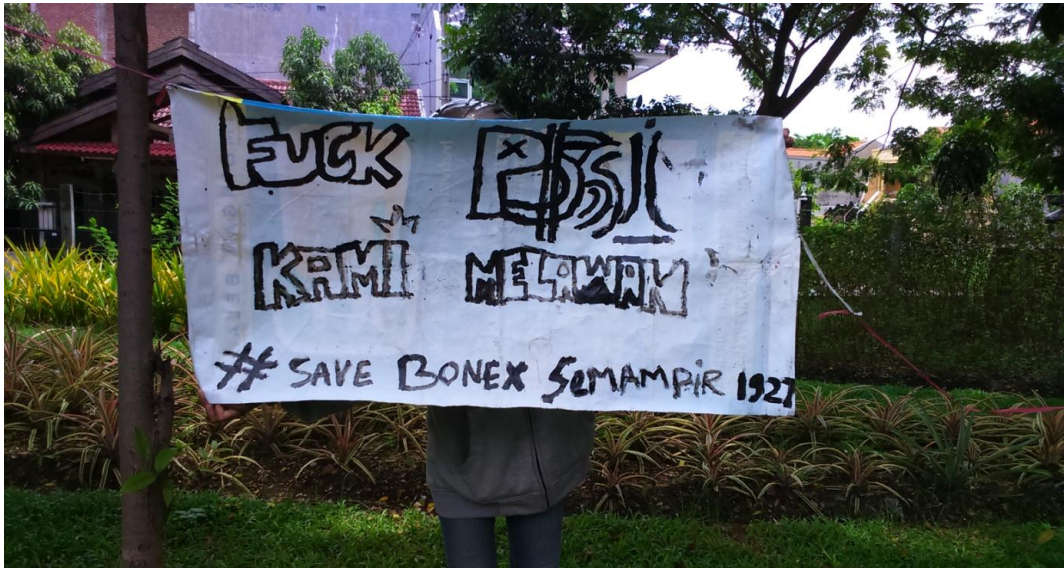 FUCK PSSI
KAMI MELAWAN
# SAVE BONEX SEMAMPIR 1927